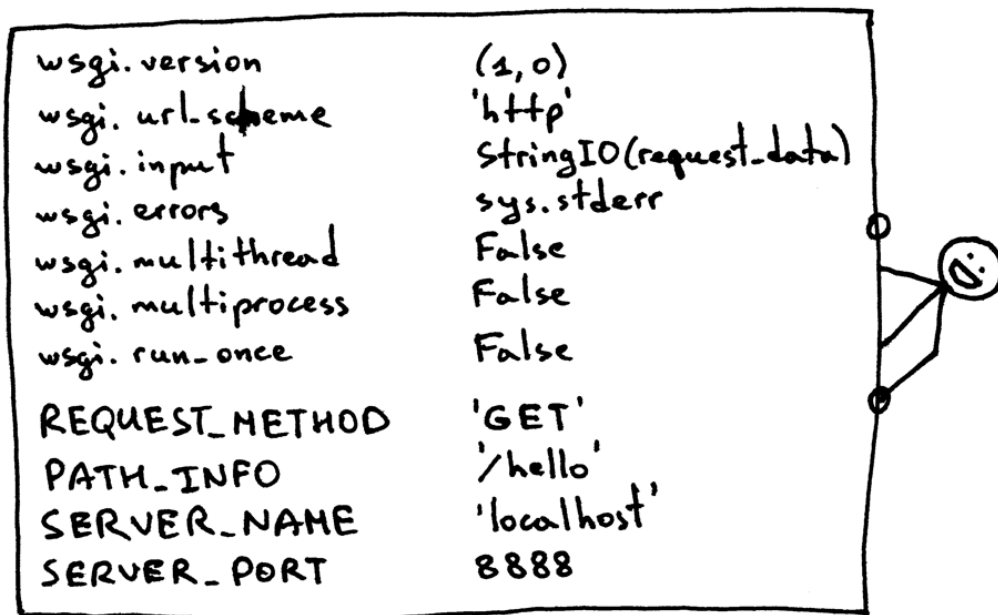 wsgi.version (1,0)
wsgi.url_scheme 'http'
wsgi.input StringIO(request_data)
wsgi.errors sys.stderr
wsgi.multithread False
wsgi.multiprocess False
wsgi.run_once False
REQUEST_METHOD 'GET'
PATH_INFO '/hello'
SERVER_NAME 'localhost'
SERVER_PORT 8888